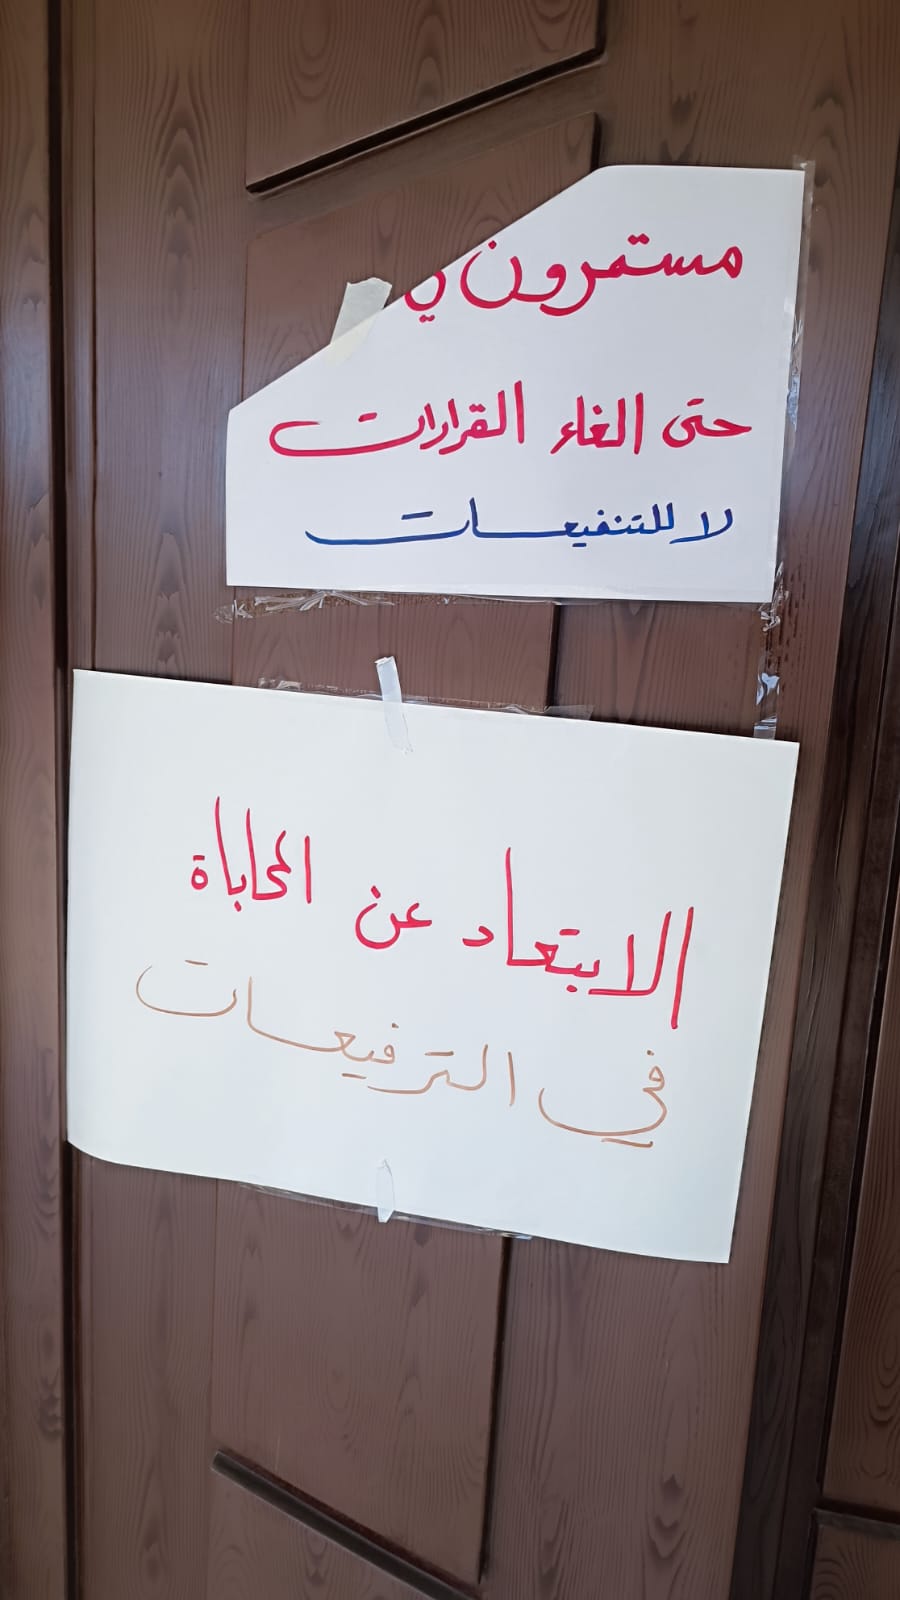 مستمرون
حتى الغاء القرارات
لا للتنفيعات
الابتعاد عن المحاباة
في الترفيعات